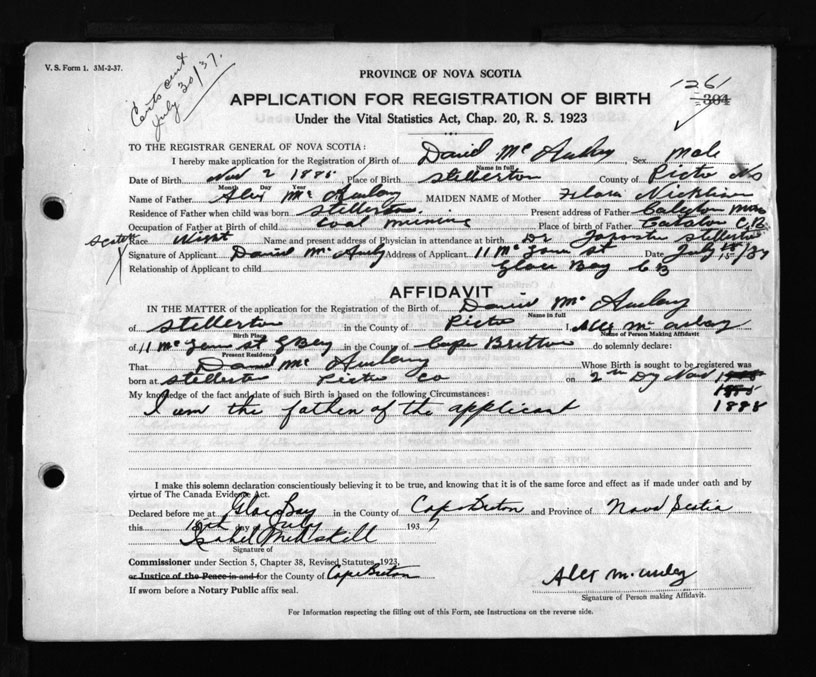 V. S. Form 1. 3M-2-37.
July 30/37.
PROVINCE OF NOVA SCOTIA
1261
304
APPLICATION FOR REGISTRATION OF BIRTH
Under the Vital Statistics Act, Chap. 20, R. S. 1923
TO THE REGISTRAR GENERAL OF NOVA SCOTIA:
I hereby make application for the Registration of Birth of David Mc Aulay Sex Male
Name in full
Date of Birth Nov 2 1888 Place of Birth Stellerton County of Picto NS
Month Day Year
Name of Father Alex Mc Aulay MAIDEN NAME of Mother Flora
Residence of Father when child was born Stellerton Present address of Father
Occupation of Father at Birth of child Coal mining Place of Birth of Father C.B.
Race Name and present address of Physician in attendance at birth Dr Stellerton
Signature of Applicant David McAuly Address of Applicant 11 St Date July 15/37
Relationship of Applicant to child Glace Bay C B
AFFIDAVIT
IN THE MATTER of the application for the Registration of the Birth of David Mc Aulay
Name in full
of Stellerton in the County of Picto I, Alex McAulay
Birth Place Name of Person Making Affidavit
of 11 st G Bay in the County of Cape Britton do solemnly declare:
Present Residence
That David Mc Aulay Whose Birth is sought to be registered was
born at Stellerton Picto Co on 2 Nov
1885
My knowledge of the fact and date of such Birth is based on the following Circumstances:
I am the father of the applicant 1888
I make this solemn declaration conscientiously believing it to be true, and knowing that it is of the same force and effect as if made under oath and by
virtue of The Canada Evidence Act.
Declared before me at Glace Bay in the County of Cape Breton and Province of Nova Scotia
this 15th day July 1937
Isabel
Signature of
Commissioner under Section 5, Chapter 38, Revised Statutes, 1923,
or Justice of the Peace in and for the County of Cape Breton
Alex McAuley
If sworn before a Notary Public affix seal.
Signature of Person making Affidavit.
For Information respecting the filling out of this Form, see Instructions on the reverse side.